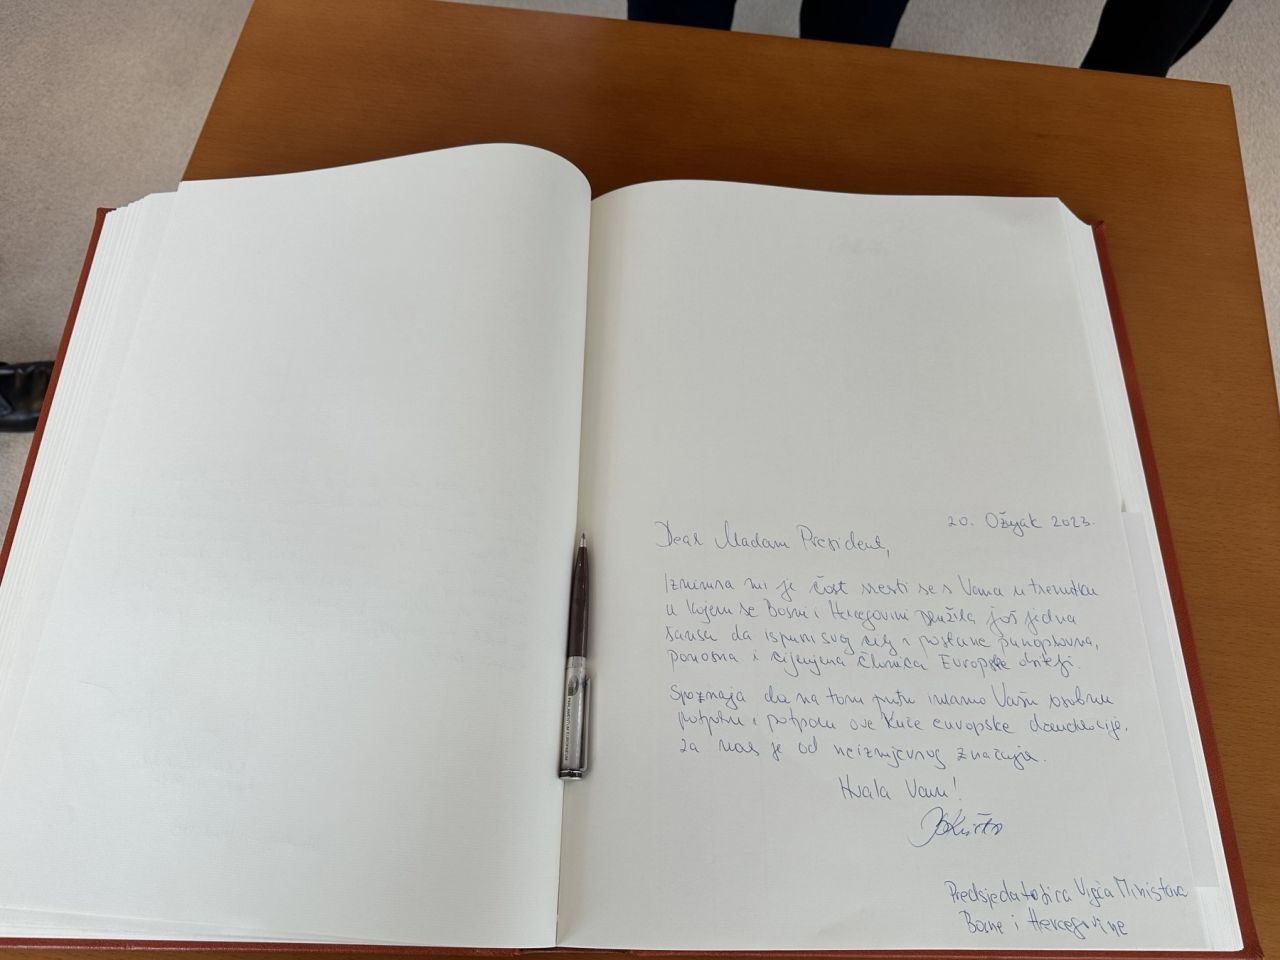 20. Ožujak 2023.
Dear Madam President,
Iznimna mi je čast sresti se s Vama u trenutku
u kojem se Bosni i Hercegovini pružila još jedna
šansa da ispuni svoj cilj i postane punopravna,
ponosna i cijenjena članica Europske obitelji.
Spoznaja da na tom putu imamo Vašu osobnu
potporu i potporu ove Kuće europske demokracije,
za nas je od neizmjernog značaja.
Hvala Vam!
Predsjedateljica Vijeća Ministara
Bosne i Hercegovine